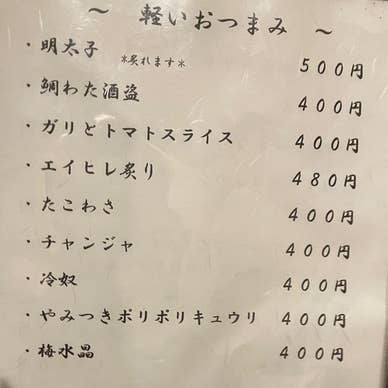 ～ 軽いおつまみ ～
・明太子 *炙れます* 500円
・鯛わた酒盗 400円
・ガリとトマトスライス 400円
・エイヒレ炙り 480円
・たこわさ 400円
・チャンジャ 400円
・冷奴 400円
・やみつきポリポリキュウリ 400円
・梅水晶 400円